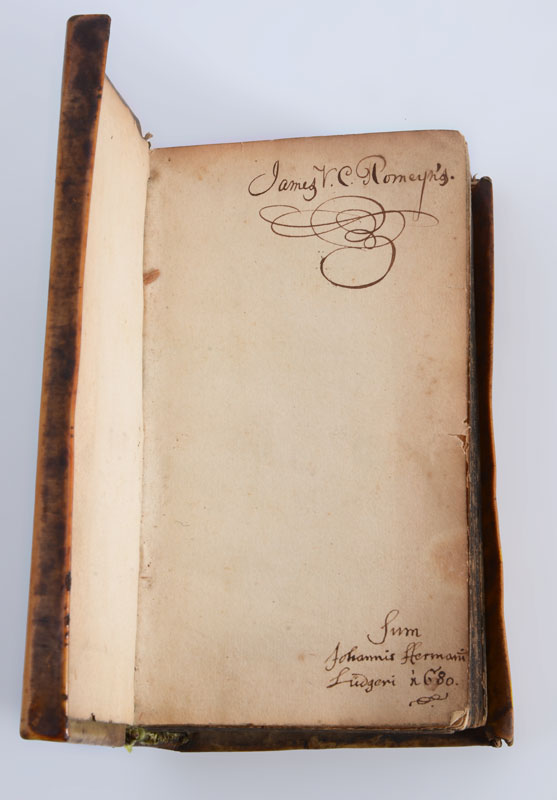 James V. C. Romeyn's.
Sum
Johannis Hermañ
Lüdgeri 1680.